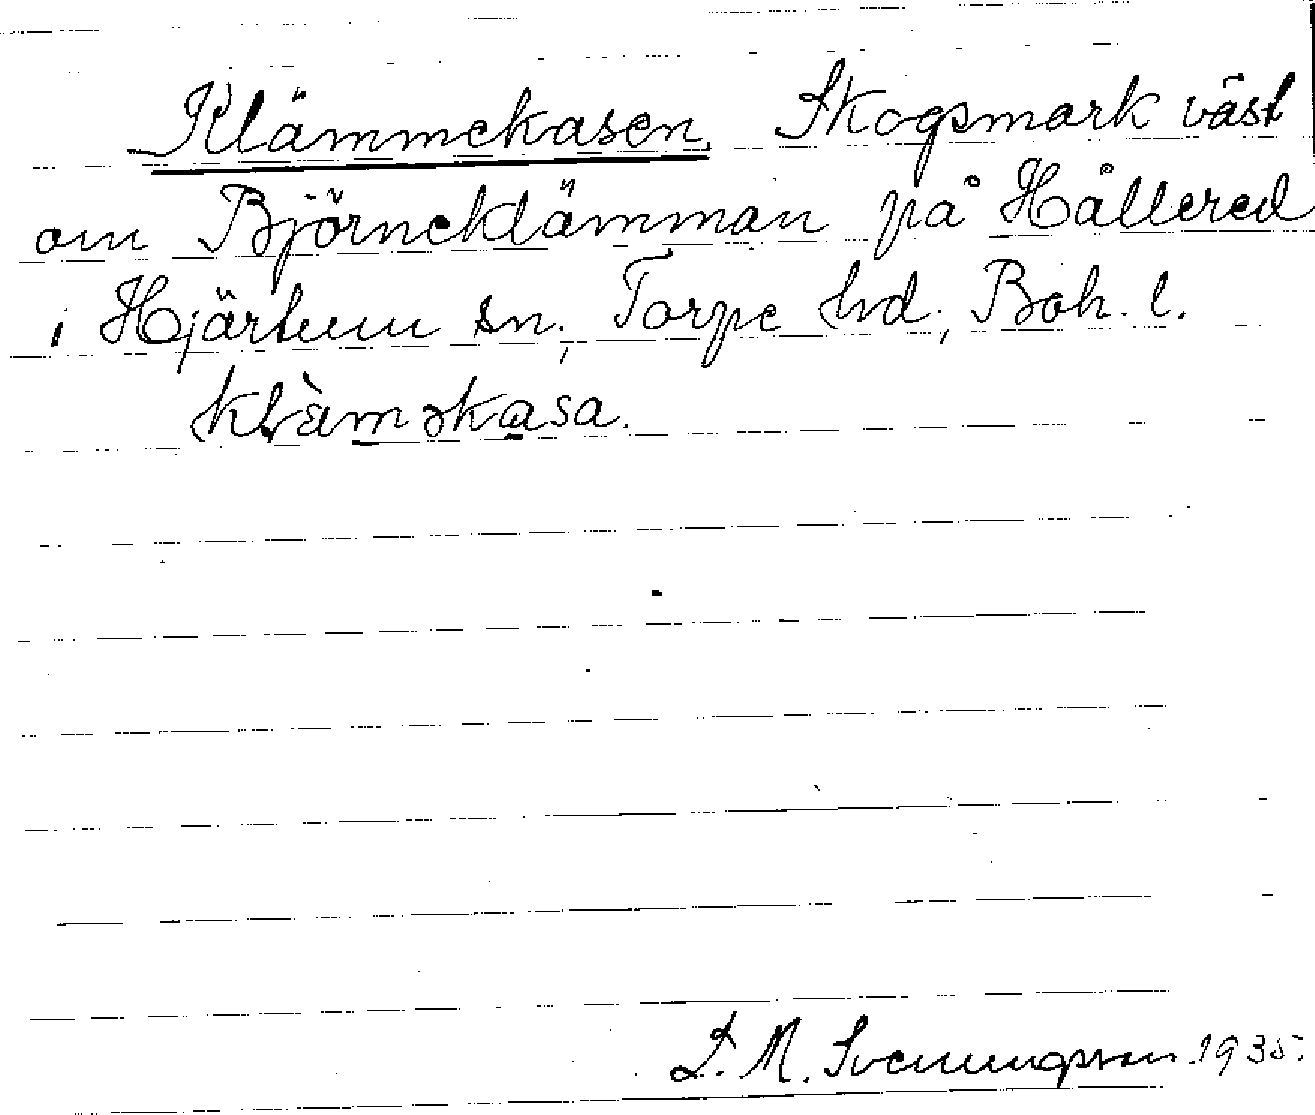 Klämmekasen. Skogsmark väst
om Björneklämman på Hållered
i Hjärtum sn; Torpe hd; Boh. l.
klàmǝkasa.
S. M. Svenungsson 1935.